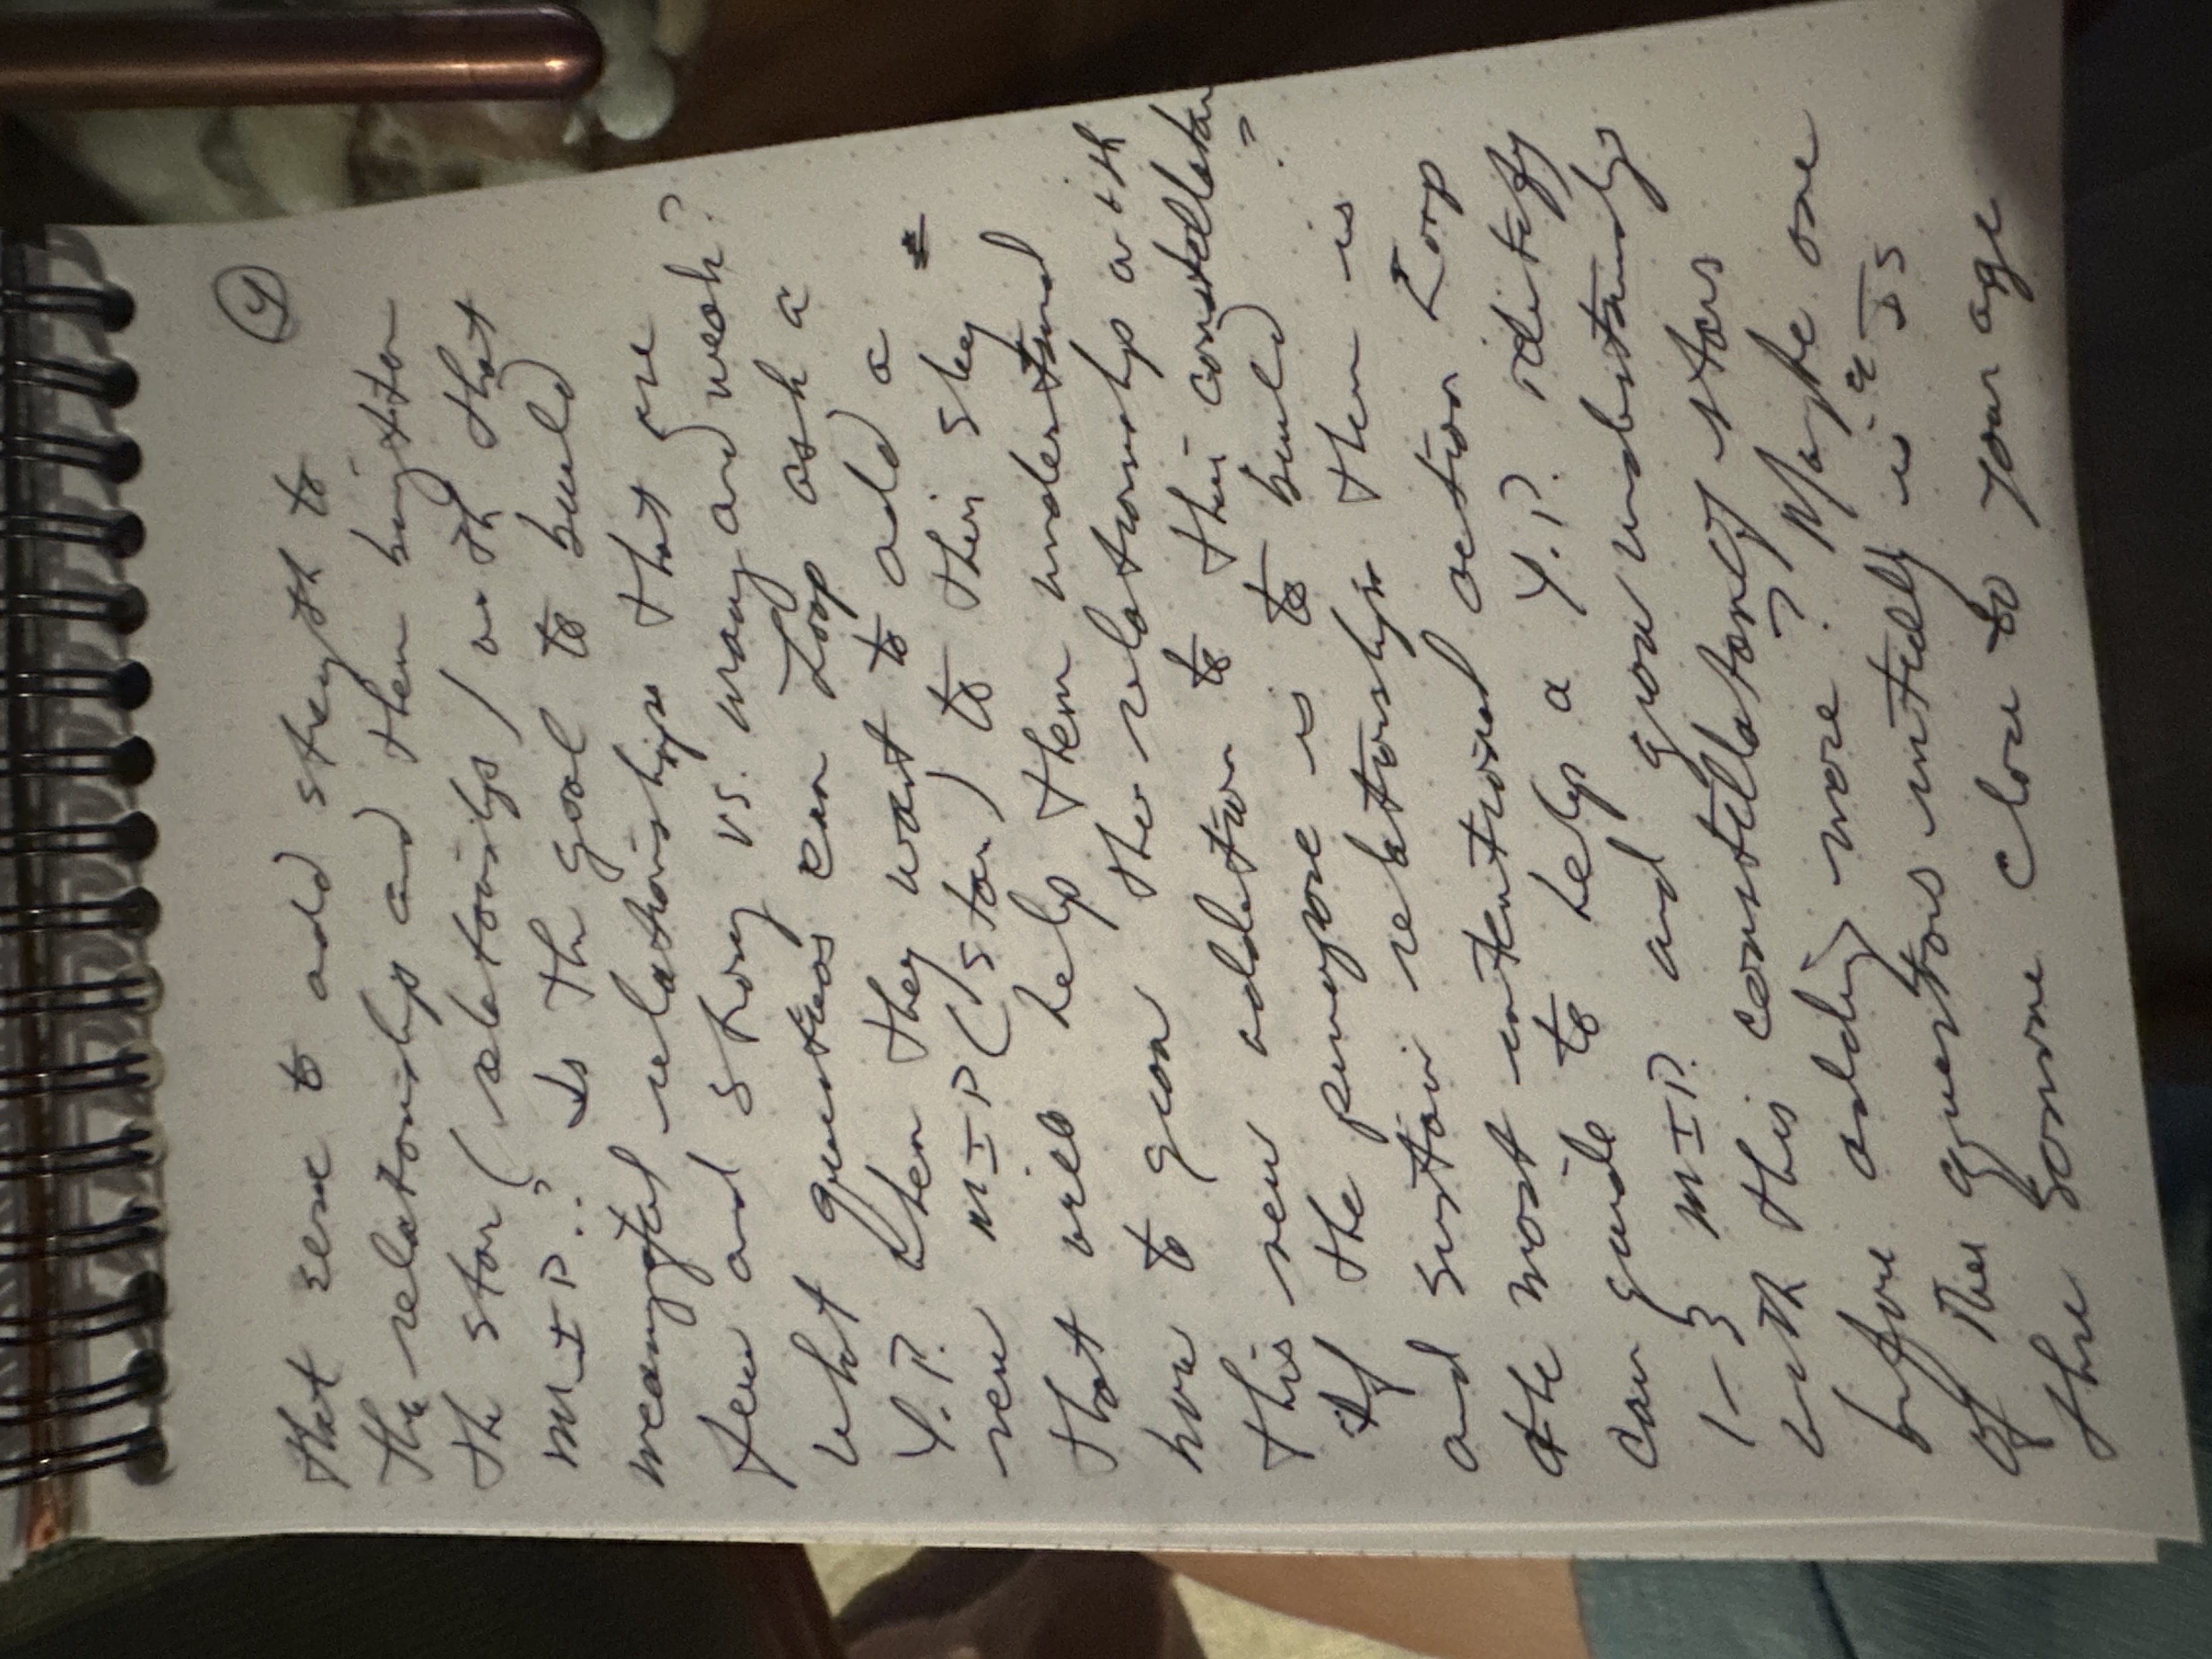 4
that serve to add strength to
the relationship and then brighten
the star (relationships) with that
MIP.? Is the goal to build
meaningful relationships that are
few and strong vs. many and weak?
What questions can Loop ask a
Y.P. when they want to add a
new MIP (star) to their sky
that will help them understand
how to grow the relationship with
this new addition to their constellation
?
If the purpose is to build
and sustain relationships then is
the most intentional action Loop
can guide to help a Y.P. identify
1-3 MIP. and grow understanding
with this constellation of stars
before adding more? Maybe one
of the questions initially is "Is
there someone close to your age